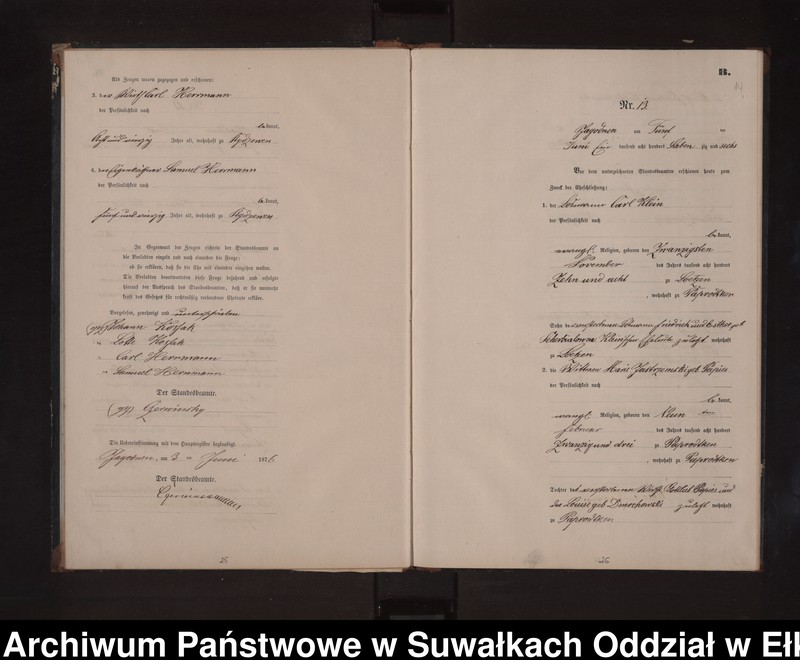 Als Zeugen waren zugezogen und erschienen:
3. der Wirth Carl Herrmann
der Persönlichkeit nach
be kannt,
Jahre alt, wohnhaft zu
4. der Eigenkäthner Samuel Herrmann
der Persönlichkeit nach
be kannt,
fünf und vierzig Jahre alt, wohnhaft zu
In Gegenwart der Zeugen richtete der Standesbeamte an
die Verlobten einzeln und nach einander die Frage:
ob sie erklären, daß sie die Ehe mit einander eingehen wollen.
Die Verlobten beantworteten diese Frage bejahend und erfolgte
hierauf der Ausspruch des Standesbeamten, daß er sie nunmehr
kraft des Gesetzes für rechtmäßig verbundene Eheleute erkläre.
Vorgelesen, genehmigt und unterschrieben
(gez) Johann Kossak
" Lotte Kossak
" Carl Herrmann
" Samuel Herrmann
Der Standesbeamte.
(gez) Czerwinsky
Die Uebereinstimmung mit dem Hauptregister beglaubigt.
Jagodnen, am 3 ten Juni 1876.
Der Standesbeamte.
26
B.
Nr. 13.
Jagodnen am Fünf ten
Juni tausend acht hundert sieben zig und sechs
Vor dem unterzeichneten Standesbeamten erschienen heute zum
Zweck der Eheschließung:
1. der Losmann Carl Klein
der Persönlichkeit nach
be kannt,
evangl. Religion, geboren den Zwanzigsten
November des Jahres tausend acht hundert
Zehn und acht zu Loetzen
, wohnhaft zu Paprodtken
Sohn der verstorbenen Losmann Friedrich und Esther geb
Klein'schen Eheleute zuletzt wohnhaft
zu Loetzen
2. die Wittwe Marie Jastrzemski geb. Papies
der Persönlichkeit nach
be kannt,
evangl. Religion, geboren den Neun ten
Februar des Jahres tausend acht hundert
Zwanzig und drei zu Paprodtken
, wohnhaft zu Paprodtken
Tochter des verstorbenen Wirth Gottlieb Papies und
der Louise geb Dmochowski zuletzt wohnhaft
zu Paprodtken
26
Archiwum Państwowe w Suwałkach Oddział w Ełk